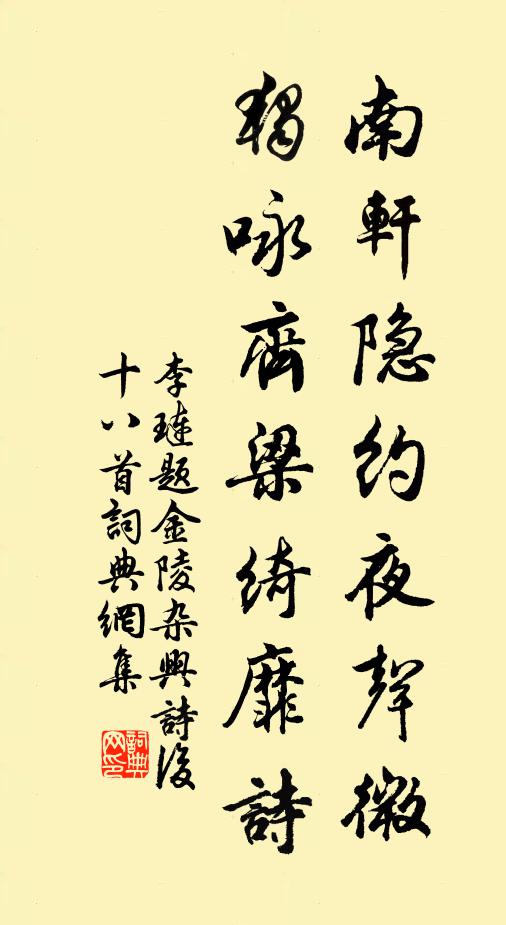 南軒隐約夜聲微
獨咏齊梁綺靡詩
李璉題金陵杂興詩後
十八首詞典網集
詞典
网印